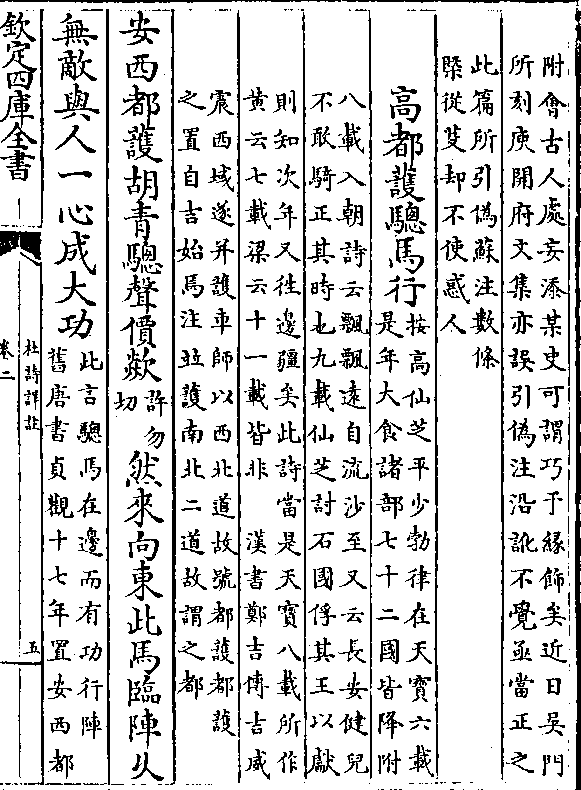 附會古人處妄添某史可謂巧于緣飾矣近日吳門
所刻庾開府文集亦誤引偽注沿訛不覺亟當正之
此篇所引偽蘇注數條
槩從芟却不使惑人
高都護驄馬行
按高仙芝平少勃律在天寶六載
是年大食諸部七十二國皆降附
八載入朝詩云飄飄遠自流沙至又云長安健兒
不敢騎正其時也九載仙芝討石國俘其王以獻
則知次年又往邊疆矣此詩當是天寶八載所作
黄云七載梁云十一載皆非 漢書鄭吉傳吉威
震西域遂并護車師以西北道故號都護都護
之置自吉始焉注並護南北二道故謂之都
安西都護胡青驄聲價歘
許勿
切
然來向東此馬臨陣乆
無敵與人一心成大功
此言驄馬在邊而有功行陣
舊唐書貞觀十七年置安西都
欽定四庫全書
杜詩詳註
卷二
五